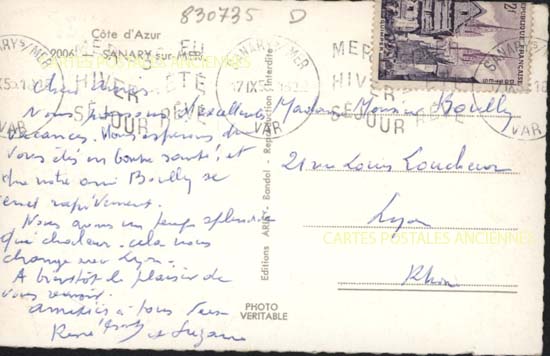 830735 D
Côte d'Azur
2006 SANARY-sur-MER
CARTES POSTALES ANCIENNES
SANARY S/ MER
VAR
MER BLEU
HIVER ÉTÉ
SÉJOUR RÊVÉ
SANARY S/ MER
17 IX
VAR
MER
HIVER
SÉJOUR
SANARY S/ MER
VAR
REPUBLIQUE FRANÇAISE
Chers Amis
Nous passons d'excellentes
vacances. Nous espérons que
vous êtes en bonne santé et
que notre ami Bouilly se
remet rapidement.
Nous avons un temps splendide
quelle chaleur. cela nous
change avec Lyon.
A bientôt le plaisir de
vous revoir.
amitiés à tous deux
René et Suzanne
Editions ARDY - Bandol - Reproduction interdite
PHOTO
VERITABLE
Madame Monsieur Bouilly
21 rue Louis Loucheur
Lyon
CARTES POSTALES ANCIENNES
Rhône